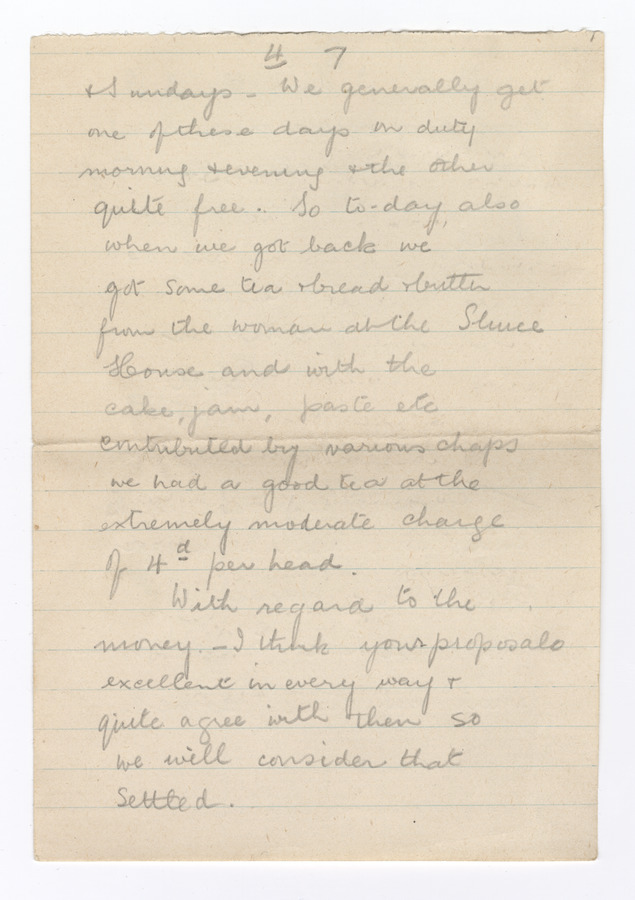 4 7
& Sundays - We generally get
one of these days on duty
morning & evening & the other
quite free. So to-day also
when we got back we
got some tea & bread & butter
from the woman at the Sluice
House and with the
cake, jam, paste etc
contributed by various chaps
we had a good tea at the
extremely moderate charge
of 4d per head.
With regard to the
money - I think your proposals
excellent in every way &
quite agree with them so
we will consider that
settled.